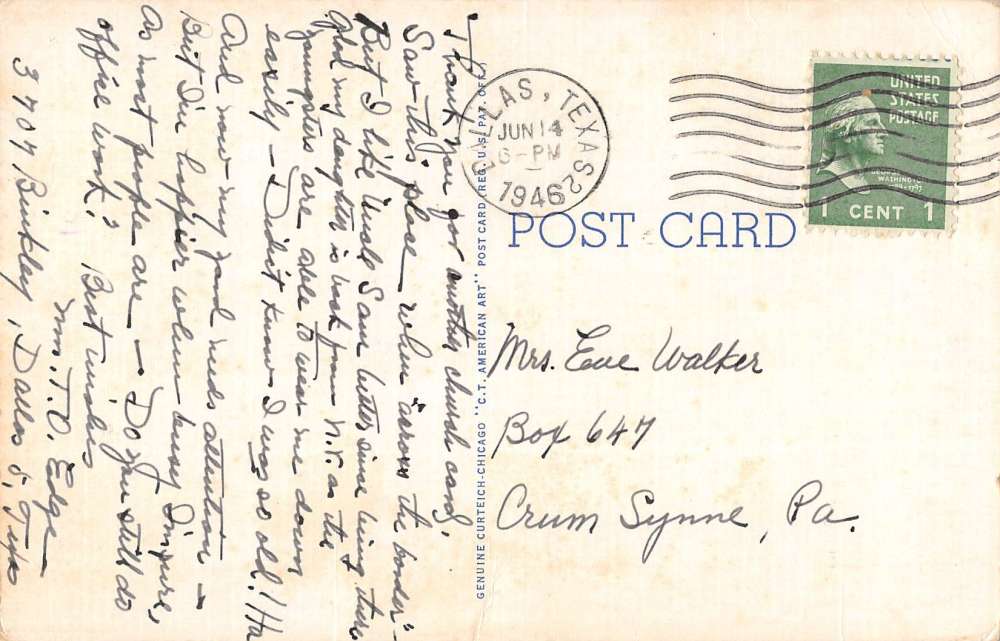 Thank you for another church card,
Saw this place when "across the border" -
But I like Uncle Sam better since being there &
glad my daughter is back from N.Y. as the
youngsters are able to wear me down
easily - Didn't know I was so old! Ha
And now my yard needs attention -
But I'm happier when busy I'm sure,
as most people are - Do you still do
office work? Best wishes
Mrs. T. O. Edge
3404 Binkley, Dallas 5, Texas
GENUINE CURTEICH-CHICAGO "C.T. AMERICAN ART" POST CARD (REG. U.S. PAT. OFF.)
DALLAS, TEXAS 2
JUN 14
6-PM
1946
UNITED
STATES
POSTAGE
GEORGE
WASHINGTON
1789-1797
1 CENT 1
POST CARD
Mrs. Eve Walker
Box 647
Crum Lynne, Pa.